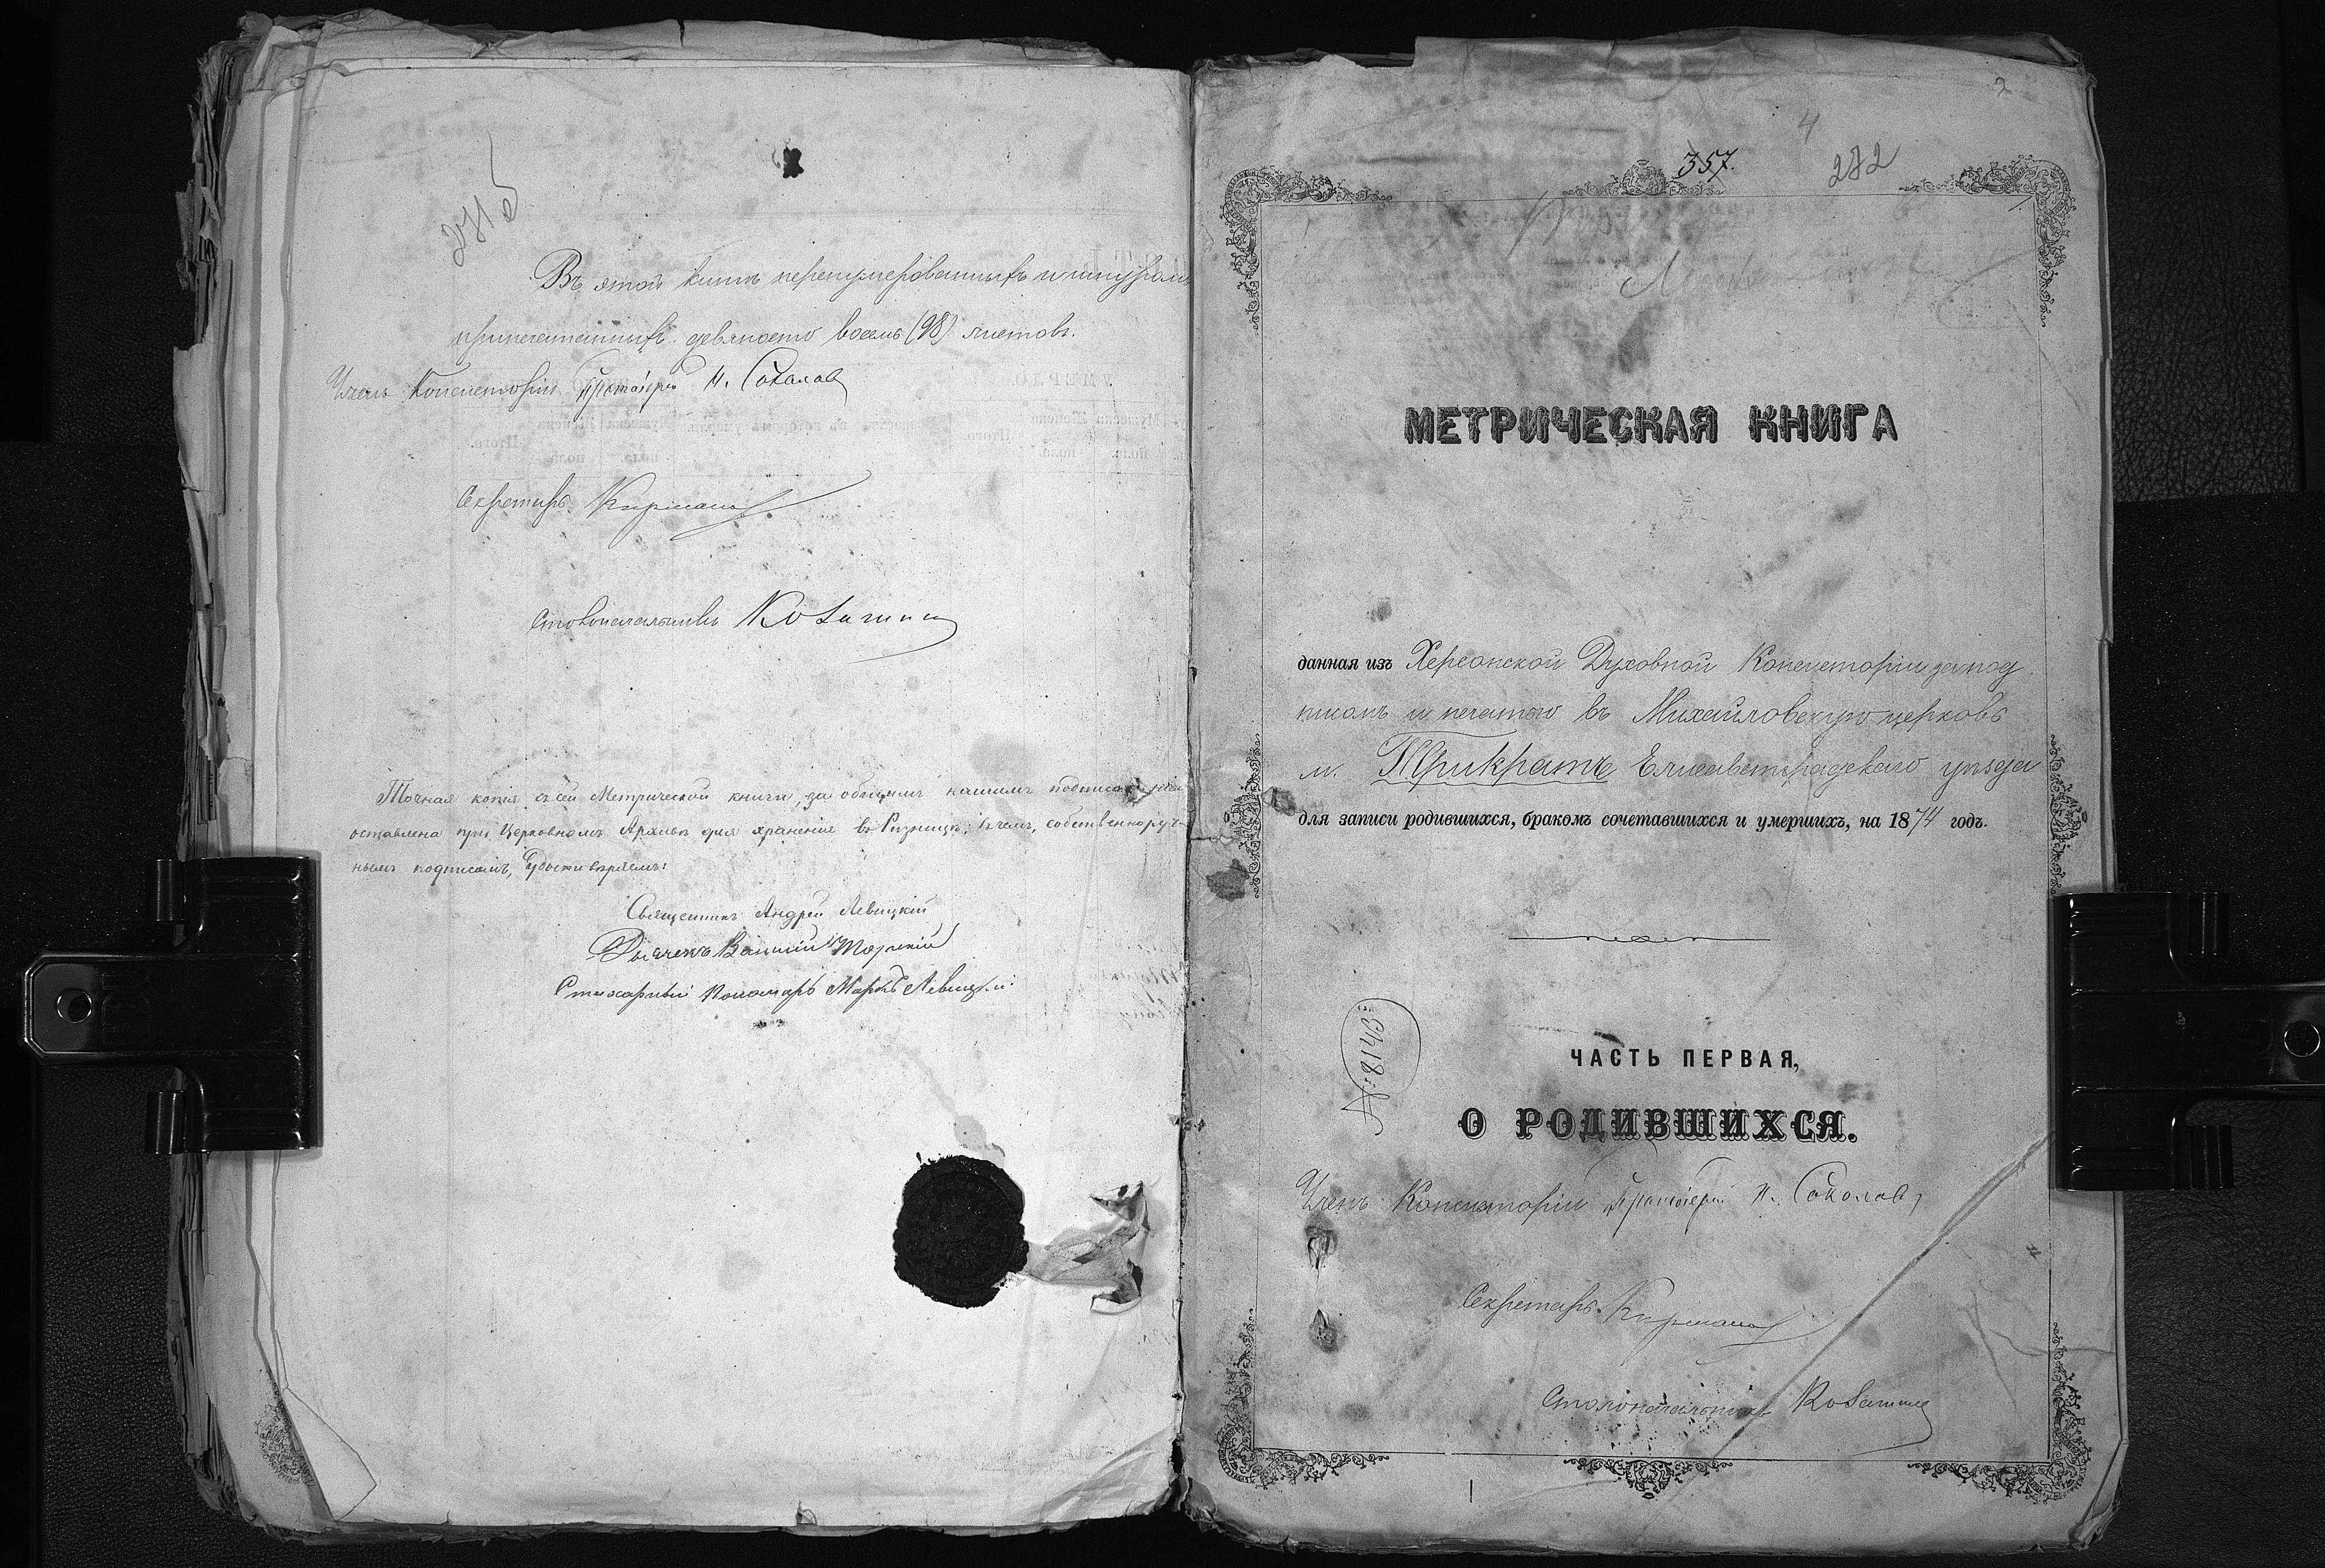 271об
Въ этой книгѣ перенумерованныхъ и шнуромъ
припечатанныхъ девяносто восемь (98) листовъ.
Членъ Консисторіи Протоіерей Н. Соколовъ
Секретарь
Столоначальникъ
Точная копія съ сей Метрической книги, за общимъ нашимъ подписомъ
оставлена при Церковномъ Архивѣ для храненія въ Ризницѣ; въ чемъ, собственноруч-
нымъ подписомъ, Удостовѣряемъ:
Священникъ Андрей Левицкій
Дьячекъ Василій
Стихарный Пономарь Маркъ Левицкій
2
4
357.
272
МЕТРИЧЕСКАЯ КНИГА
данная изъ Херсонской Духовной Консисторіи за под
писомъ и печатью въ Михайловскую церковь
м. Трикратъ Елисаветградскаго уѣзда
для записи родившихся, бракомъ сочетавшихся и умершихъ, на 1874 годъ.
ЧАСТЬ ПЕРВАЯ,
О РОДИВШИХСЯ.
Членъ Консисторіи Протоіерей Н. Соколовъ
Секретарь
Столоначальникъ